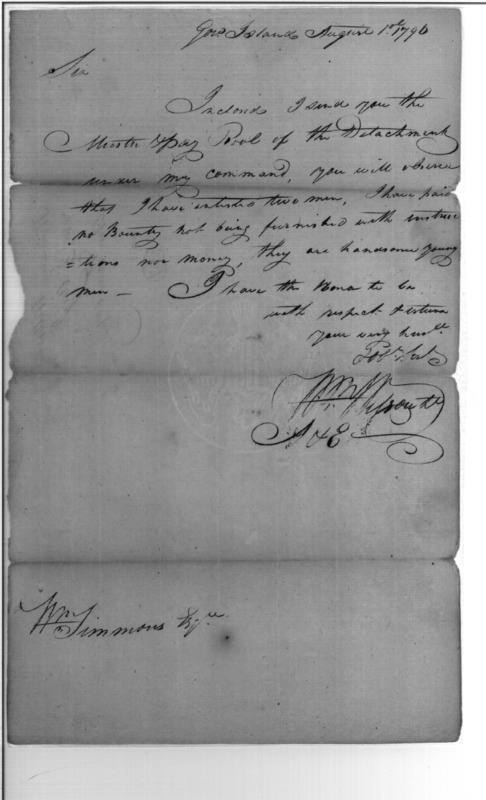 Govs Island August 1st 1796
Sir
Inclosed I send you the
Muster & Pay Rool of the Detachment
under my command, you will observe
that I have enlisted two men, I have paid
no Bounty not being furnished with instruc
=tions nor money, they are handsome young
men — I have the Honor to be
with respect & esteem
your very humle
Obt Servt
Wm Wilson
A & E
Wm Simmons Esqre